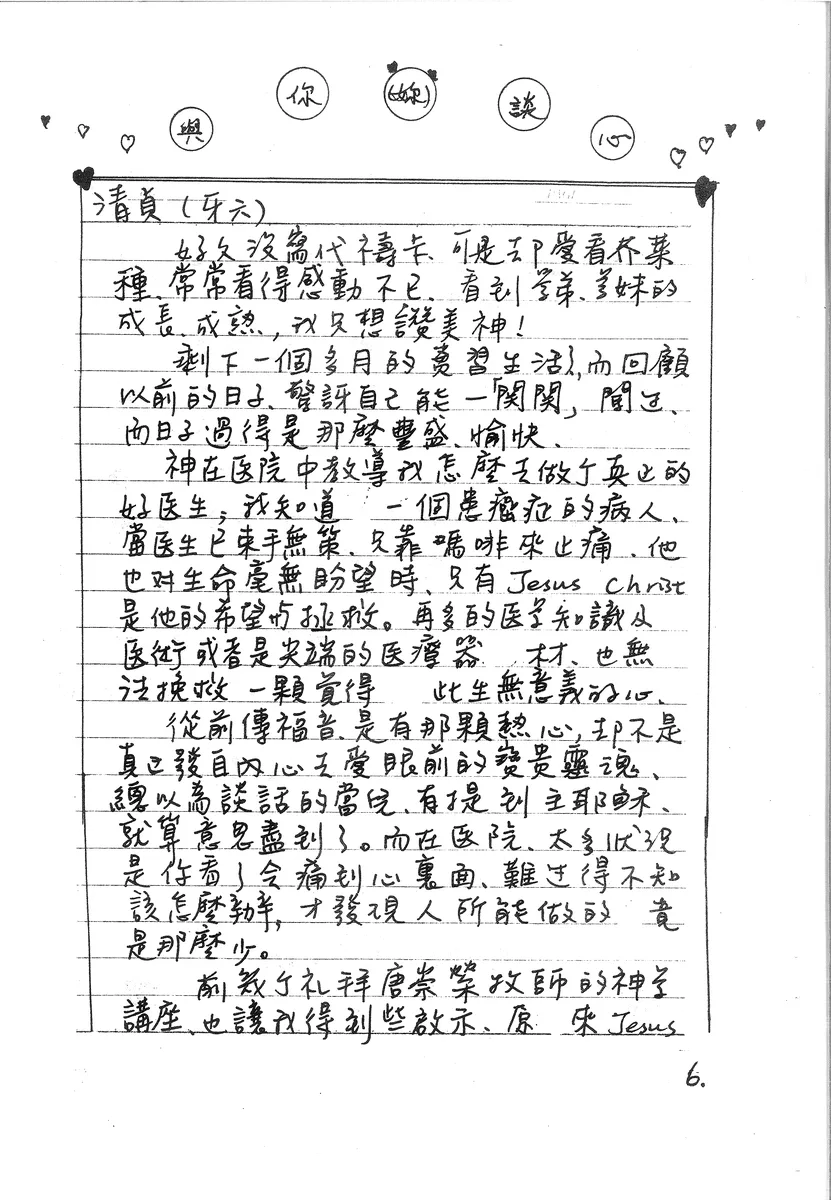 與你(妳)談心
清貞(牙六)
好久沒寫代禱卡、可是却愛看芥菜
種、常常看得感動不已、看到弟弟、妹妹的
成長、成熟,我只想讚美神!
剩下一個多月的實習生活,而回顧
以前的日子、驚訝自己能一「関関」闖过、
而日子過得是那麼豐盛、愉快、
神在医院中教導我怎麼去做个真正的
好医生;我知道 一個患癌症的病人、
當医生已束手無策、只靠嗎啡來止痛、他
也对生命毫無盼望時、只有Jesus Christ
是他的希望与拯救。再多的医学知識及
医術或者是尖端的医療器 材、也無
法挽救一顆覺得 此生無意義的心、
從前傳福音、是有那顆熱心,却不是
真正發自內心去愛眼前的寶貴靈魂、
總以為談話的當兒、有提到主耶穌、
就算意思盡到了。而在医院、太多狀況
是你看了会痛到心裏面、難过得不知
該怎麼辦,才發現人所能做的 竟
是那麼少。
前幾个礼拜唐崇榮牧師的神学
講座、也讓我得到些啟示、原 來Jesus
6.